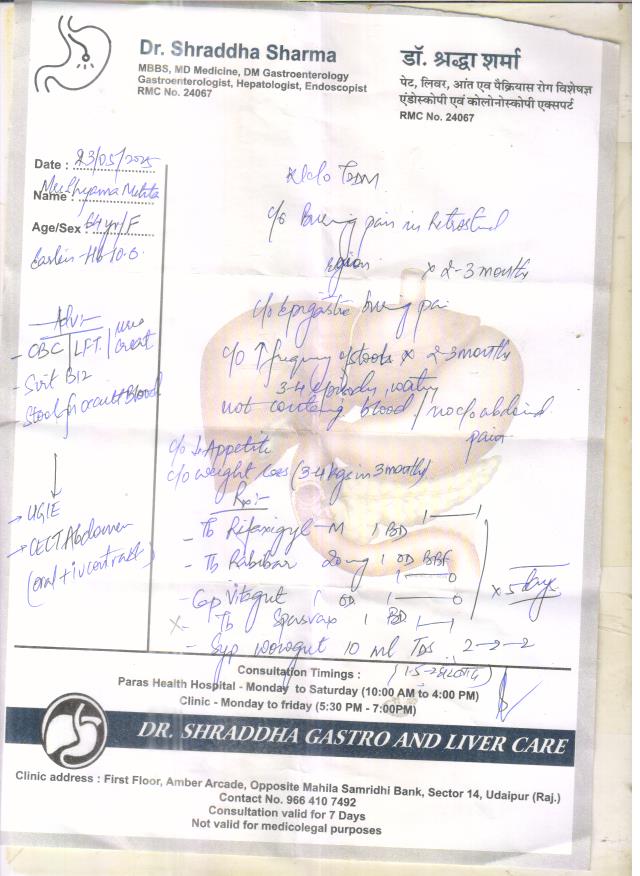 Dr. Shraddha Sharma
MBBS, MD Medicine, DM Gastroenterology
Gastroenterologist, Hepatologist, Endoscopist
RMC No. 24067
डॉ. श्रद्धा शर्मा
पेट, लिवर, आंत एव पैक्रियास रोग विशेषज्ञ
एंडोस्कोपी एवं कोलोनोस्कोपी एक्सपर्ट
RMC No. 24067
Date : 23/05/2025
Name : Mehta
Age/Sex : yr/F
Hb 10.0
Adv:-
- CBC / LFT / creat
- S vit B12
Stool for occult Blood
→ UGIE
→ CECT Abdomen
(oral + iv contrast)
K/c/o T2DM
c/o Burning pain in Retrosternal
region x 2-3 months
c/o Epigastric burning pain
c/o ↑ frequency of stools x 2-3 months
3-4 episodes, watery
not containing blood / no c/o abdominal
pain
c/o ↓ Appetite
c/o weight loss (3-4 kgs in 3 months)
Rx:-
- Tb Rifaxigyl-M 1 BD 1——1
- Tb Rabibar 20mg 1 OD BBF 1——0
- Cap Vitagut 1 OD 1——0
x 5 days
- Tb Spasvax 1 BD 1—1
- Syp 10 ml TDS 2-2-2
Consultation Timings :
Paras Health Hospital - Monday to Saturday (10:00 AM to 4:00 PM)
Clinic - Monday to friday (5:30 PM - 7:00PM)
DR. SHRADDHA GASTRO AND LIVER CARE
Clinic address : First Floor, Amber Arcade, Opposite Mahila Samridhi Bank, Sector 14, Udaipur (Raj.)
Contact No. 966 410 7492
Consultation valid for 7 Days
Not valid for medicolegal purposes